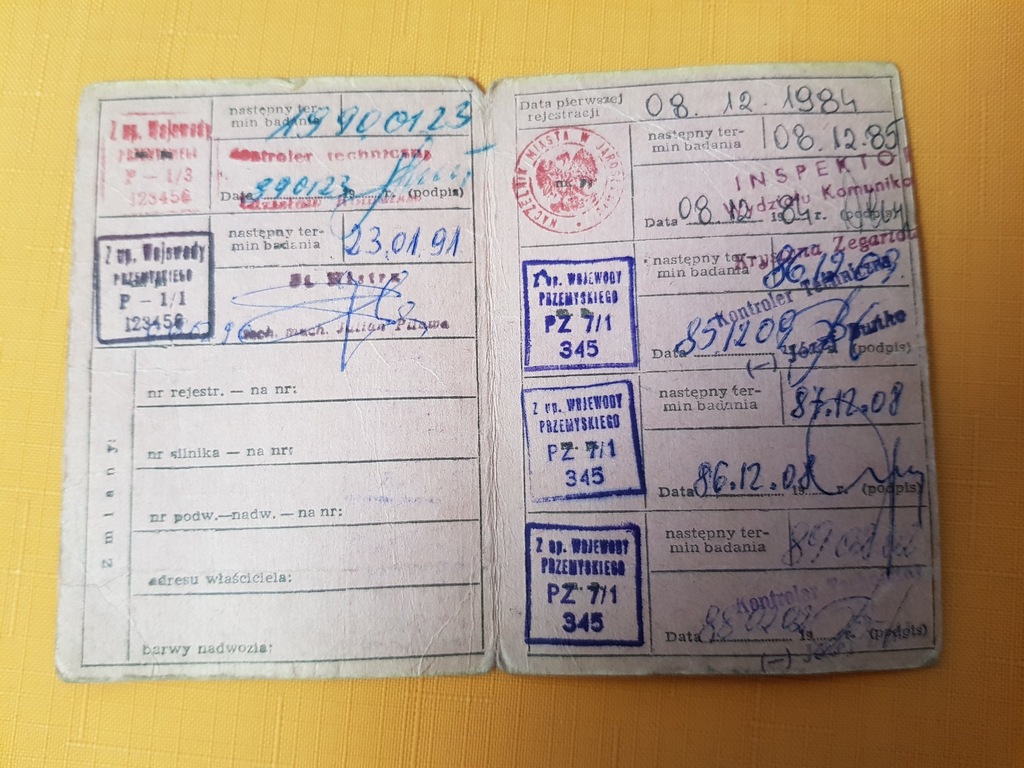 Z up. Wojewody
PRZEMYSKIEGO
P - 1/3
123456
następny ter-
min badania
19900123
Kontroler techniczny
Data 890123 19 r. (podpis)
Z up. Wojewody
PRZEMYSKIEGO
P - 1/1
123456
następny ter-
min badania
23.01.91
mech. Julian Pilawa
zmiany:
nr rejestr. — na nr:
nr silnika — na nr:
nr podw.—nadw. — na nr:
adresu właściciela:
barwy nadwozia:
Data pierwszej
rejestracji
08. 12. 1984
NACZELNIK MIASTA W
następny ter-
min badania
08.12.85
INSPEKTO
Wydziału Komunika
Data 08.12 1984 r. (podpis)
Krystyna
Z up. WOJEWODY
PRZEMYSKIEGO
PZ 7/1
345
następny ter-
min badania
Kontroler Techniczny
Data 851209 (podpis)
(—) Józef
Z up. WOJEWODY
PRZEMYSKIEGO
PZ 7/1
345
następny ter-
min badania
87.12.08
Data 86.12.08. 19 r. (podpis)
Z up. WOJEWODY
PRZEMYSKIEGO
PZ 7/1
345
następny ter-
min badania
Kontroler
Data 19 r. (podpis)
(—) Józef